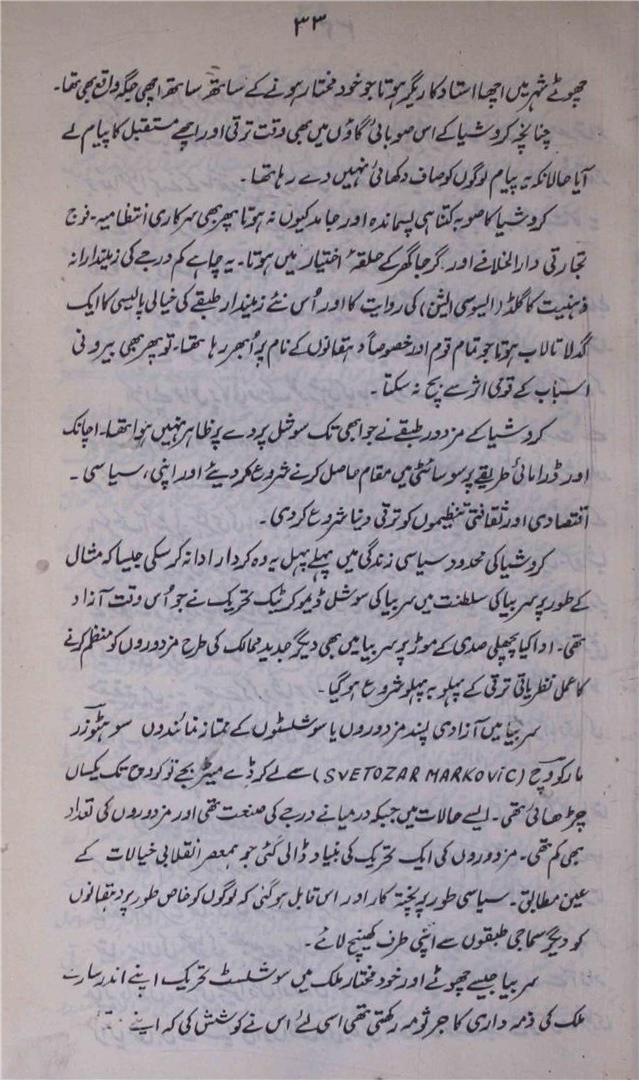 ۳۳
چھوٹے شہر میں اچھا استاد کاریگر ہوتا جو خود مختار ہونے کے ساتھ ساتھ اچھی جگہ واقع بھی تھا۔
چنانچہ کروشیا کے اس صوبائی گاؤں میں بھی وقت ترقی اور اچھے مستقبل کا پیام لے
آیا حالانکہ یہ پیام لوگوں کو صاف دکھائی نہیں دے رہا تھا۔
کروشیا کا صوبہ کتنا ہی پسماندہ اور جامد کیوں نہ ہوتا پھر بھی سرکاری انتظامیہ۔ فوج
تجارتی دارالخلافے اور گرجا گھر کے حلقۂ اختیار میں ہوتا۔ یہ چاہے کم درجے کی زمیندارانہ
ذہنیت کا گلڈ (الیوسی ایشن) کی روایت کا اور اُس نئے زمیندار طبقے کی خیالی پالیسی کا ایک
گدلا تالاب ہوتا جو تمام قوم اور خصوصاً دہقانوں کے نام پر اُبھر رہا تھا۔ تو پھر بھی بیرونی
اسباب کے قومی اثر سے بچ نہ سکتا۔
کروشیا کے مزدور طبقے نے جو ابھی تک سوشل پردے پر ظاہر نہیں ہوا تھا۔ اچانک
اور ڈرامائی طریقے پر سوسائٹی میں مقام حاصل کرنے شروع کر دیئے اور اپنی، سیاسی۔
اقتصادی اور ثقافتی تنظیموں کو ترقی دینا شروع کر دی۔
کروشیا کی محدود سیاسی زندگی میں پہلے پہل یہ وہ کردار ادا نہ کر سکی جیسا کہ مثال
کے طور پر سربیا کی سلطنت میں سربیا کی سوشل ڈیموکریٹک تحریک نے جو اُس وقت آزاد
تھی۔ ادا کیا پچھلی صدی کے موڑ پر سربیا میں بھی دیگر جدید ممالک کی طرح مزدوروں کو منظم کرنے
کا عمل نظریاتی ترقی کے پہلو بہ پہلو شروع ہو گیا۔
سربیا میں آزادی پسند مزدوروں یا سوشلسٹوں کے ممتاز نمائندوں سوہٹوزر
مارکووچ (SVETOZAR MARKOVIC) سے لے کر ڈے میٹر بجے توکووچ تک یکساں
چڑھائی تھی۔ ایسے حالات میں جبکہ درمیانے درجے کی صنعت تھی اور مزدوروں کی تعداد
بھی کم تھی۔ مزدوروں کی ایک تحریک کی بنیاد ڈالی گئی جو ہمعصر انقلابی خیالات کے
عین مطابق۔ سیاسی طور پر پختہ کار اور اس قابل ہو گئی کہ لوگوں کو خاص طور پر دہقانوں
کو دیگر سماجی طبقوں سے اپنی طرف کھینچ لائے۔
سربیا جیسے چھوٹے اور خود مختار ملک میں سوشلسٹ تحریک اپنے اندر سارے
ملک کی ذمہ داری کا جرثومہ رکھتی تھی اسی لئے اس نے کوشش کی کہ اپنے